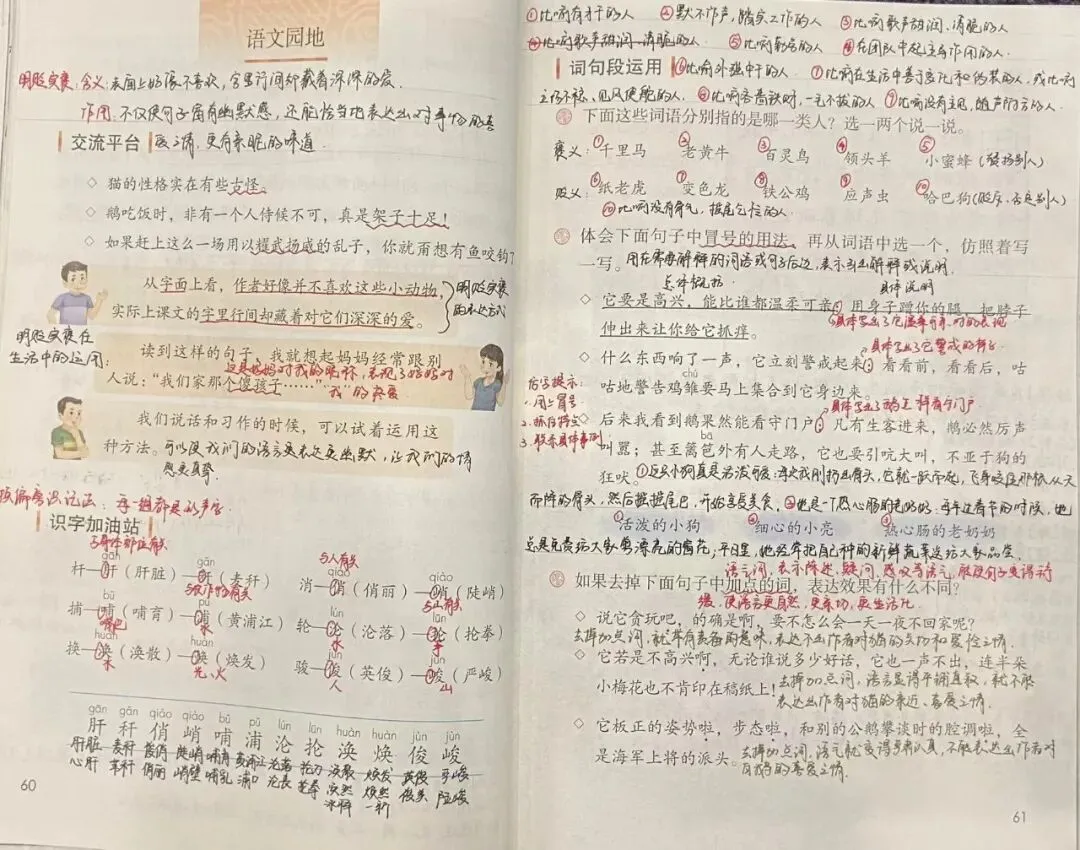 语文园地
明贬实褒:含义:表面上好像不喜欢,字里行间却藏着深深的爱。
作用:不仅使句子富有幽默感,还能恰当地表达出对事物的喜
交流平台
爱之情,更有亲昵的味道.
◇ 猫的性格实在有些古怪。
◇ 鹅吃饭时,非有一个人侍候不可,真是架子十足!
◇ 如果赶上这么一场用以耀武扬威的乱子,你就甭想有鱼咬钩了
从字面上看,作者好像并不喜欢这些小动物,
实际上课文的字里行间却藏着对它们深深的爱。
明贬实褒
的表达方式
明贬实褒在
生活中的运用:
读到这样的句子,我就想起妈妈经常跟别
这是妈妈对我的昵称,表现了妈妈对
人说:“我们家那个傻孩子……”
“我”的疼爱
我们说话和习作的时候,可以试着运用这
种方法。
可以使我们的语言更表达更幽默,让我们的情
感更真挚
按偏旁识记法:每一组都是形声字
识字加油站
与身体部位有关
gān gǎn
杆—肝(肝脏)—秆(麦秆)
与农作物有关
bǔ pǔ
捕—哺(哺育)—浦(黄浦江)
嘴巴 水
huàn huàn
换—涣(涣散)—焕(焕发)
水 光、火
与人有关
qiào qiào
消—俏(俏丽)—峭(陡峭)
与山有关
lún lūn
轮—沦(沦落)—抡(抡拳)
水 手
jùn jùn
骏—俊(英俊)—峻(严峻)
人 山
gān gǎn qiào qiào bǔ pǔ lún lūn huàn huàn jùn jùn
肝 秆 俏 峭 哺 浦 沦 抡 涣 焕 俊 峻
肝脏 麦秆 俊俏 陡峭 哺育 黄浦江 沦落 抡刀 涣散 焕发 英俊
心肝 草秆 俏丽 峭壁 哺乳 浦口 沦丧 抡拳 涣然 焕然 俊美 险峻
冰释 一新
60
①比喻有才干的人 ②默不作声,踏实工作的人 ③比喻歌声甜润、清脆的人
④比喻歌声甜润、清脆的人 ⑤比喻勤劳的人 ④在团队中起主导作用的人.
词句段运用
⑥比喻外强中干的人. ⑦比喻在生活中善于变化和伪装的人,或比喻
立场不稳,见风使舵的人. ⑧比喻吝啬钱财,一毛不拔的人 ⑨比喻没有主见,随声附和的人.
下面这些词语分别指的是哪一类人?选一两个说一说。
褒义: ①千里马 ②老黄牛 ③百灵鸟 ④领头羊 ⑤小蜜蜂
贬义: ⑥纸老虎 ⑦变色龙 ⑧铁公鸡 ⑨应声虫 ⑩哈巴狗
⑩比喻没有骨气,摇尾乞怜的人.
体会下面句子中冒号的用法,再从词语中选一个,仿照着写
一写。
用在需要解释的词语或句子后边,表示引出解释或说明.
总体概括 具体说明
◇ 它要是高兴,能比谁都温柔可亲:用身子蹭你的腿,把脖子
伸出来让你给它抓痒。
具体写出了它警戒的样子
◇ 什么东西响了一声,它立刻警戒起来:看看前,看看后,咕
chú
咕地警告鸡雏要马上集合到它身边来。
后写提示:
1.用上冒号
2.抓住特点
3.联系具体事例
◇ 后来我看到鹅果然能看守门户:凡有生客进来,鹅必然厉声
bā
叫嚣;甚至篱笆外有人走路,它也要引吭大叫,不亚于狗的
狂吠。
①这只小狗真是活泼可爱:每次我刚扔出骨头,它就一跃而起,飞身咬住那根从天
而降的骨头,然后摇摇尾巴,开始享受美食. ③她是一个热心肠的老奶奶:每年过春节的时候,她
①活泼的小狗 ②细心的小亮 ③热心肠的老奶奶
总是免费给大家剪漂亮的窗花;平日里,她经常把自己种的新鲜蔬菜送给大家品尝.
语气词,表示陈述、疑问、感叹等语气,能使句子变得舒
如果去掉下面句子中加点的词,表达效果有什么不同?
缓,使语言更自然、更亲切、更生活化
◇ 说它贪玩吧,的确是啊,要不怎么会一天一夜不回家呢?
去掉加点词,就带有责备的意味,表达不出作者对猫的亲切和爱怜之情.
◇ 它若是不高兴啊,无论谁说多少好话,它也一声不出,连半朵
小梅花也不肯印在稿纸上!
去掉加点词,语言显得平铺直叙,就不能
表达出作者对猫的亲近、喜爱之情.
◇ 它板正的姿势啦,步态啦,和别的公鹅攀谈时的腔调啦,全
是海军上将的派头。
去掉加点词,语气就变得
白鹅的喜爱之情.
61